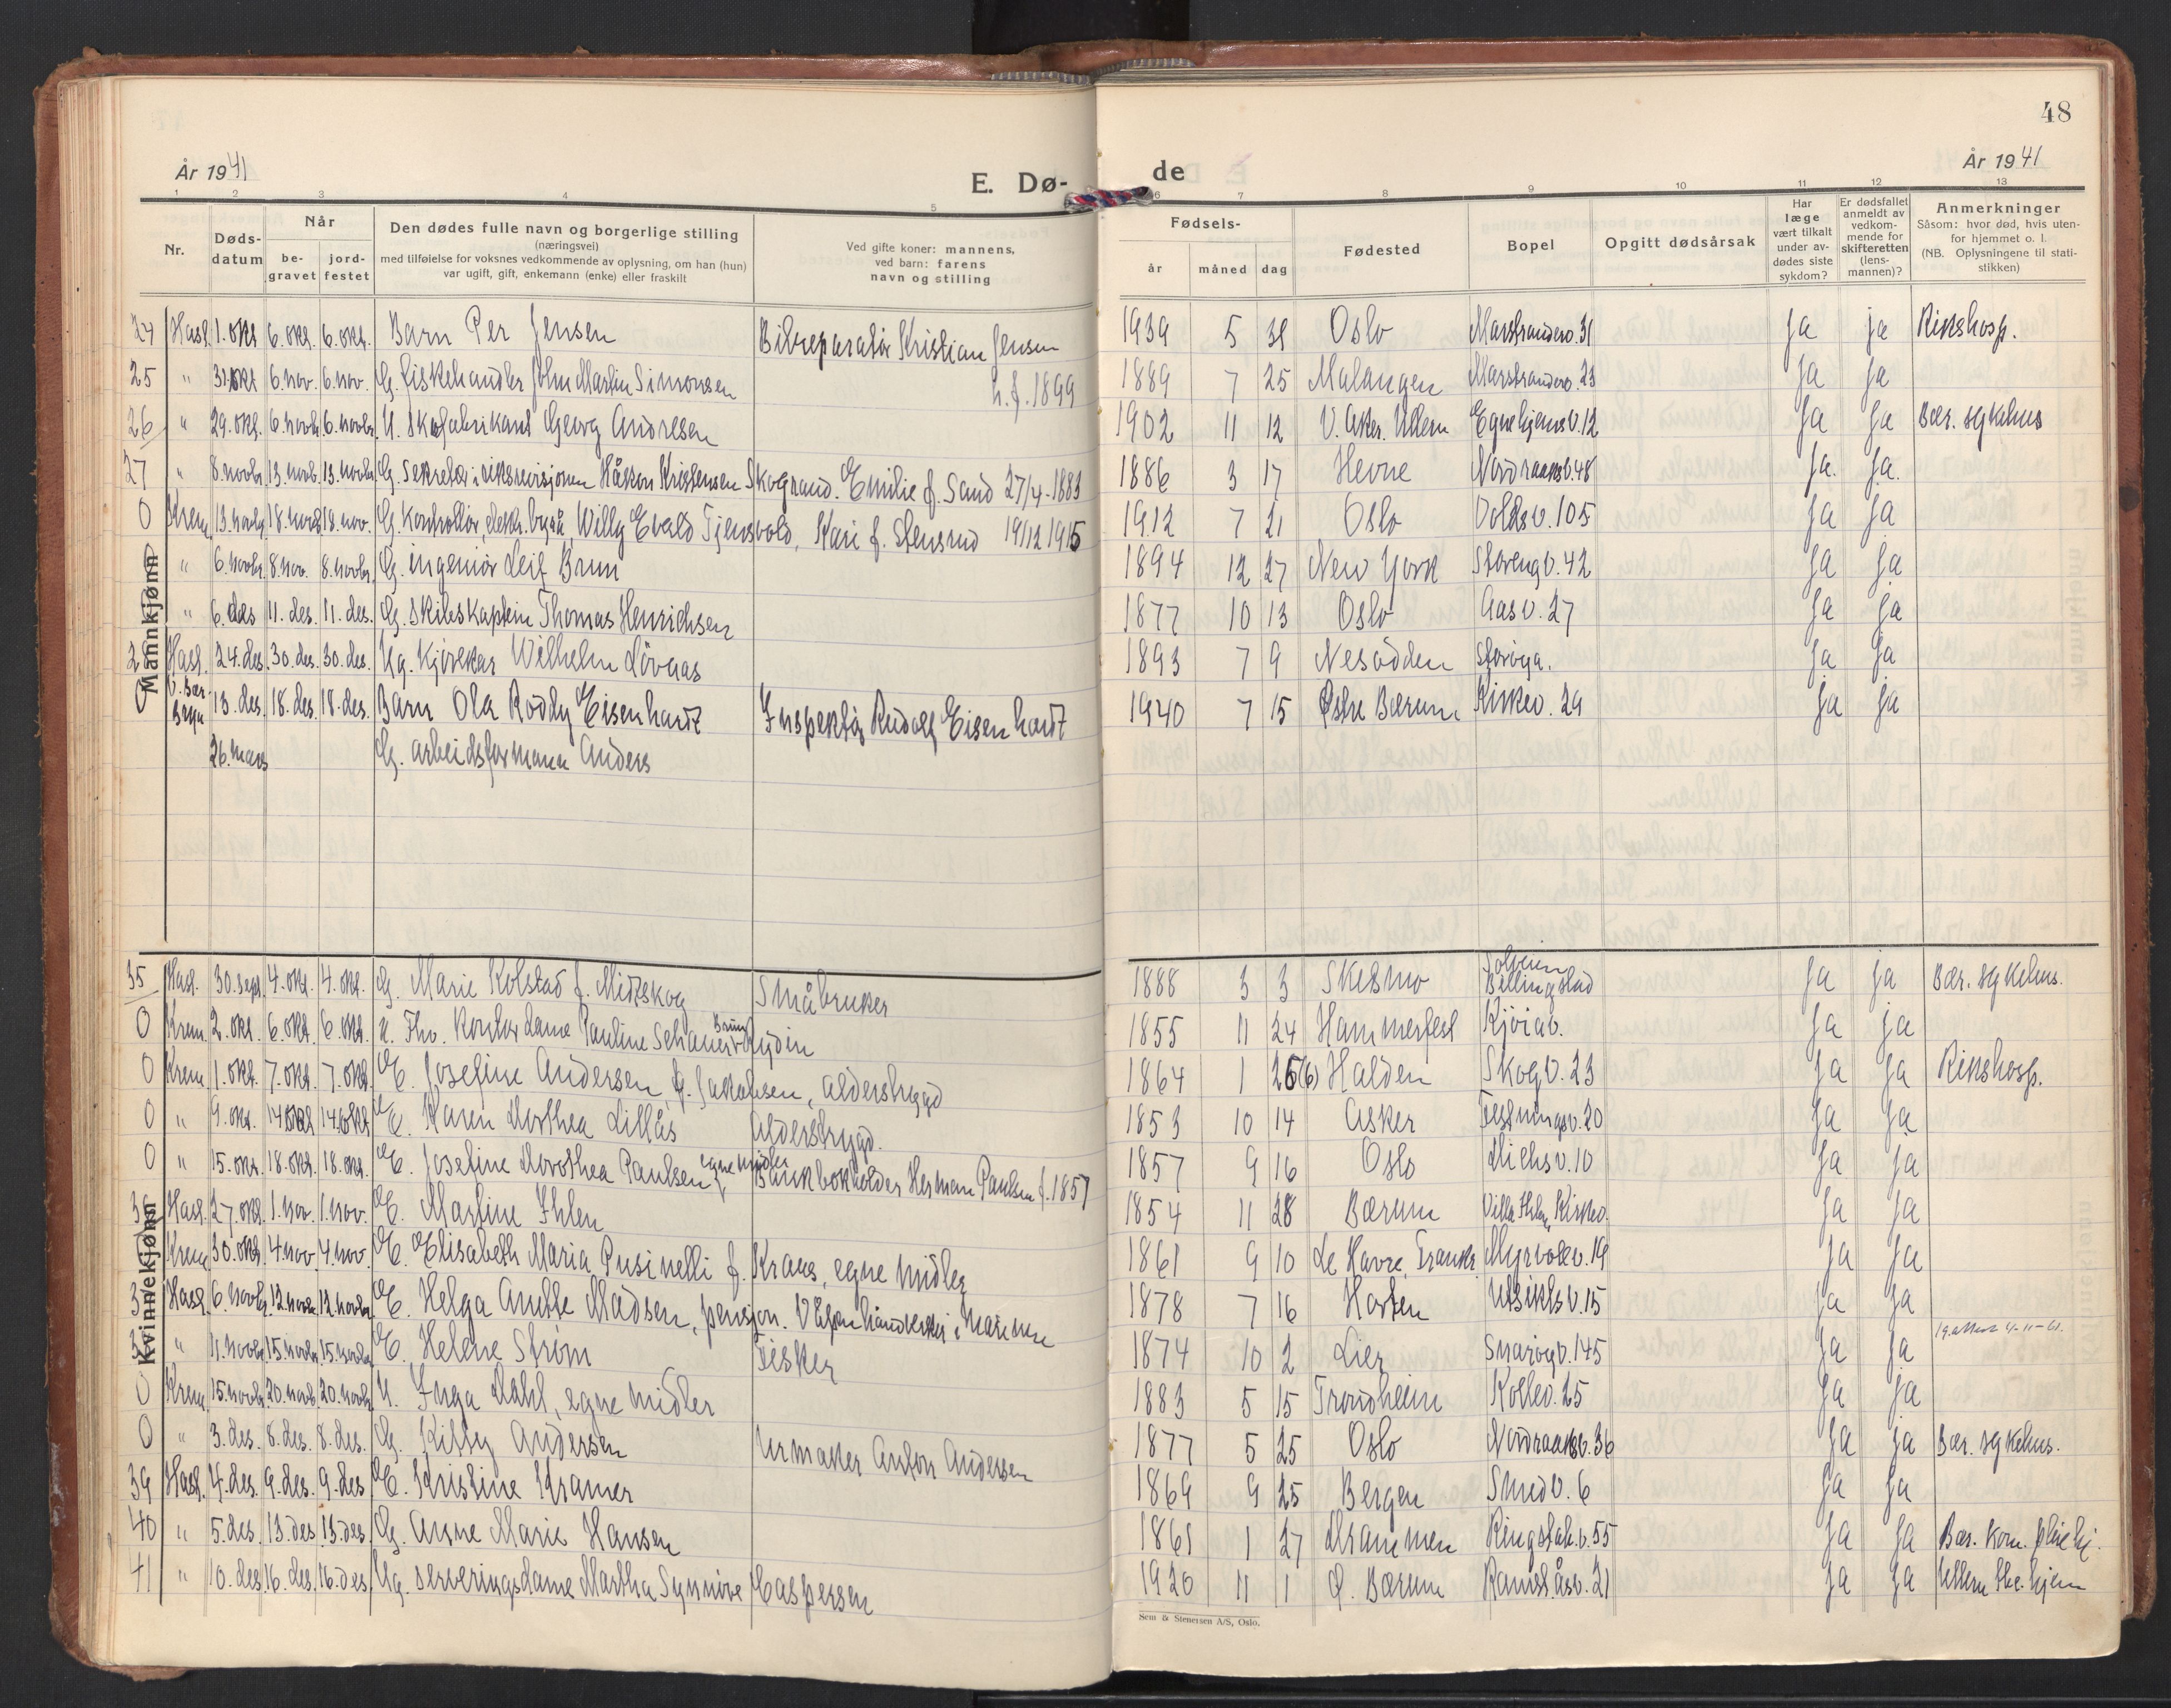 48
År 1941
E. Dø-
de
År 1941
1 2 3 4 5 6 7 8 9 10 11 12 13
Nr.
Døds-
datum
Når
be-
gravet
jord-
festet
Den dødes fulle navn og borgerlige stilling
(næringsvei)
med tilføielse for voksnes vedkommende av oplysning, om han (hun)
var ugift, gift, enkemann (enke) eller fraskilt
Ved gifte koner: mannens,
ved barn: farens
navn og stilling
Fødsels-
år
måned
dag
Fødested
Bopel
Opgitt dødsårsak
Har
læge
vært tilkalt
under av-
dødes siste
sykdom?
Er dødsfallet
anmeldt av
vedkom-
mende for
skifteretten
(lens-
mannen)?
Anmerkninger
Såsom: hvor død, hvis uten-
for hjemmet o. l.
(NB. Oplysningene til stati-
stikken)
Mannkjønn
24 Hasl. 1. okt. 6. okt. 6. okt. Barn Per Jensen Bilreparatör Kristian Jensen 1939 5 31 Oslo Marstranderv. 31 ja ja Rikshosp.
25 " 31. okt. 6. nov. 6. nov. G. fiskehandler John Martin Simonsen h. f. 1899 1889 7 25 Malangen Marstranderv. 23 ja ja
26 " 29. okt. 6. novbr. 6. novbr. U. Skofabrikant Georg Andresen 1902 11 12 V. Aker. Ullern Egnehjemsv. 12 ja ja Bær. sykehus
27 " 8. novbr. 13. novb. 13. novbr. G. Sekretær i riksrevisjonen Håkon Kristensen Skogrand. Emilie f. Sand 27/4-1883 1886 3 17 Hevne Nordraaksv. 48 ja ja
0 Krem. 13. novbr. 18. novbr. 18. nov. G. Kontrollör, elektr. byrå, Willy Evald Tjensvold, Kari f. Stensrud 19/12 1915 1912 7 21 Oslo Voldsv. 105 ja ja
" 6. novbr. 8. nov. 8. novbr. G. ingeniör Leif Brun 1894 12 27 New York Storengv. 42 ja ja
" 6. des 11. des. 11. des. G. Skibskaptein Thomas Henrichsen 1877 10 13 Oslo Aasv. 27 ja ja
28 Hasl. 24. des. 30. des. 30. des. Ug. Kjörekar Wilhelm Lövaas 1893 7 9 Nesodden Storöya. ja ja
0 V. Bær. Bryn 13. des. 18. des. 18. des. Barn Ola Roddy Eisenhardt Inspektör Rudolf Eisenhardt 1940 7 15 Østre Bærum Kirkev. 29 ja ja
26. mars G. arbeidsformann Anders
Kvinnekjønn
35 Hasl. 30. sept. 4. okt. 4. okt. G. Marie Kolstad f. Midtskog Småbruker 1888 3 3 Skesmo Solveien Billingstad ja ja Bær. sykehus.
0 Krem. 2. okt. 6. okt. 6. okt. U. Fhv. Kontordame Pauline Brun Rydin 1855 11 24 Hammerfest Kjöiav. ja ja
0 Krem 1. okt. 7. okt. 7. okt. E. Josefine Andersen, f. Jakobsen, alderstrygd 1864 1 26(6) Halden Skogv. 23 ja ja Rikshosp.
0 " 9. okt. 14 okt 14 okt E. Karen Dorthea Lillås Alderstrygd. 1853 10 14 Asker Festningsv. 20 ja ja
0 " 15. okt. 18. okt. 18. okt. E. Josefine Dorothea Paulsen, egne midler Bankbokholder Herman Paulsen f. 1857 1857 9 16 Oslo Michsv. 10 ja ja
36 Hasl. 27. okt. 1. nov. 1. nov. E. Martine Ihlen 1854 11 28 Bærum Villa Ihlen, Kirkev. ja ja
Krem 30. okt. 4. nov 4. nov. E. Elisabeth Maria Pusinelli f. Kraus, egne midler 1861 9 10 Le Havre, Frankr. Myrvollv. 19 ja ja
37 Hasl. 6. novbr. 12. novbr. 12 novbr. E. Helga Anette Madsen, pensjon. Våpenhåndverker i Marinen 1878 7 16 Horten Utsiktsv. 15 ja ja
" 11. novbr. 15 novbr. 15. novbr. E. Helene Strøm Fisker 1874 10 2 Lier Snaröyv. 145 ja ja 4-11-61.
0 Krem. 15. novbr. 20. novb. 20. novbr. U. Inga Dahl, egne midler 1883 5 15 Trondheim Kollev. 25 ja ja
0 " 3. des. 8. des. 8. des. G. Kitty Andersen Urmaker Anton Andersen 1877 5 25 Oslo Nordraaksv. 36 ja ja Bær. sykehus.
39 Hasl. 4. des. 9. des. 9. des E. Kristine Kramer 1869 9 25 Bergen Smedv. 6 ja ja
40 " 5. des. 13. des 13. des. G. Anne Marie Hansen 1861 1 27 Drammen Ringstabv. 55 ja ja Bær. kom. pleiehj.
41 " 10. des. 16. des. 16. des Ug. serveringsdame Martha Synnöve Caspersen 1920 11 1 Ø. Bærum Ramstadåsv. 21 ja ja Ullern hj
Sem & Stenersen A/S, Oslo.